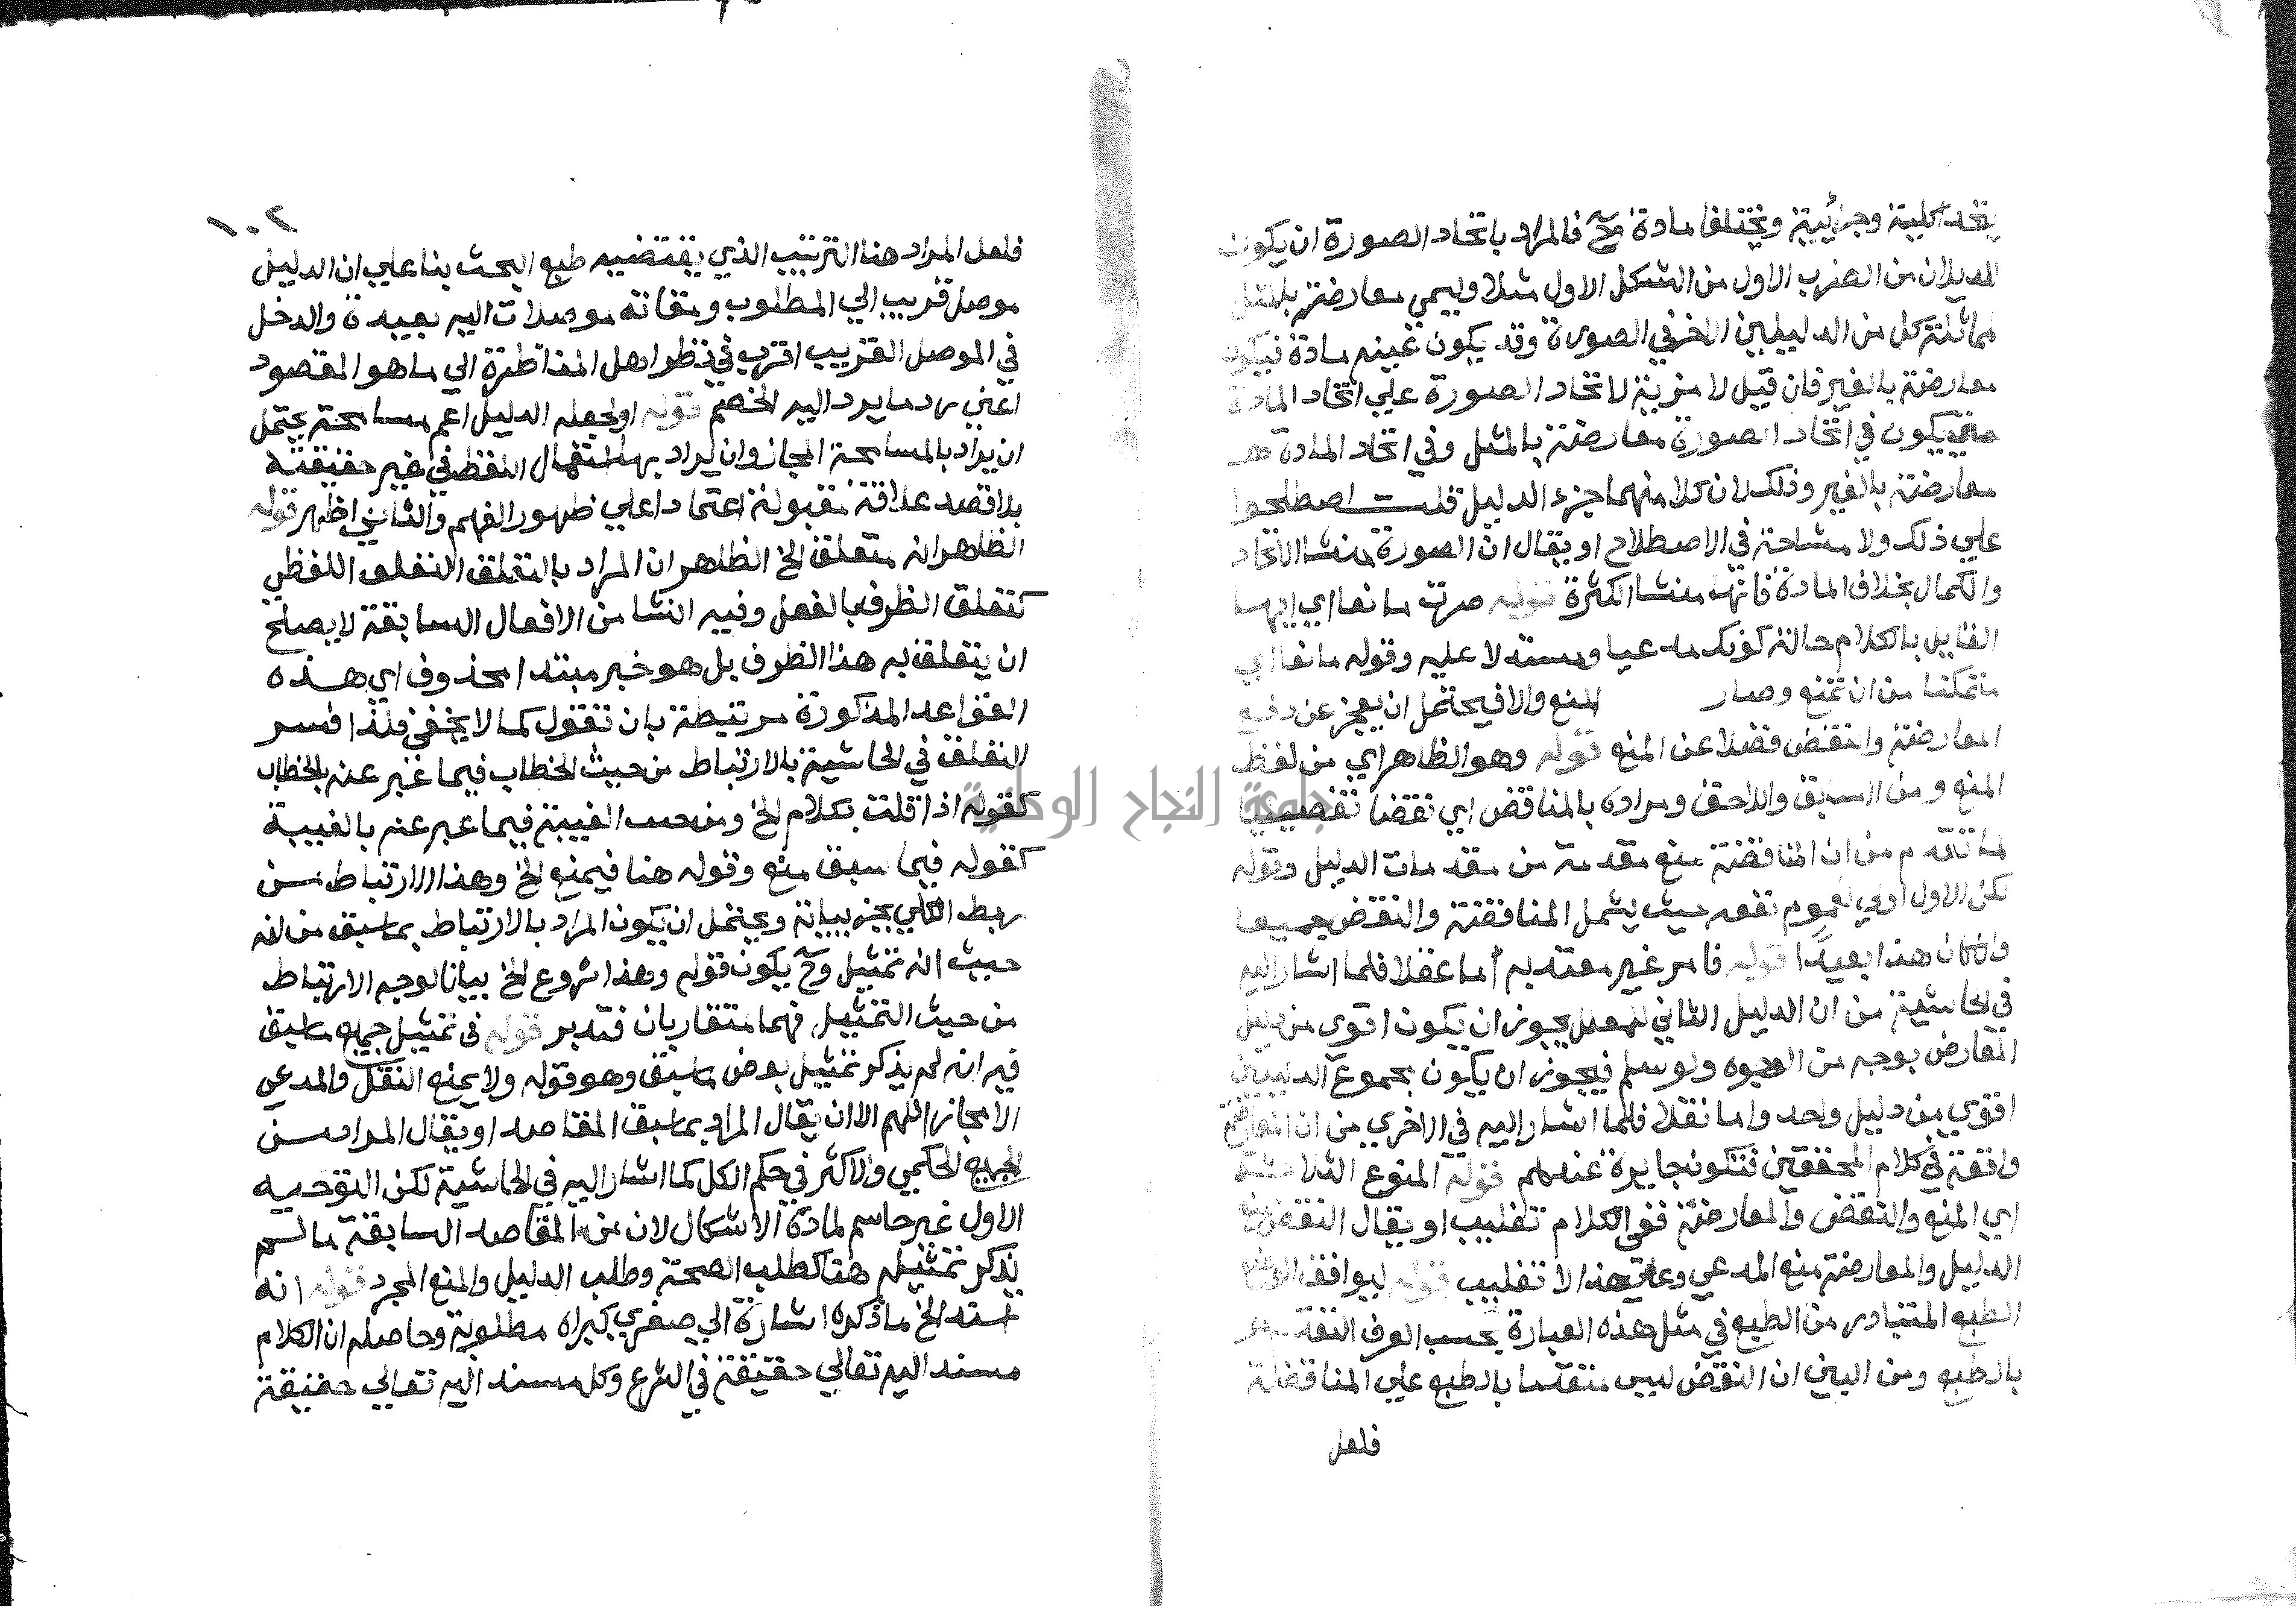 يتحد كلية وجزئية ويختلفا مادة وح فالمراد باتحاد الصورة ان يكون
الدليلان من الضرب الاول من الشكل الاول مثلا ويسمي معارضة بالمثل
لمماثلة كل من الدليلين الاخر في الصورة وقد يكون غيبنه مادة فيكون
معارضة بالغير فان قيل لا مزية لاتحاد الصورة علي اتحاد المادة
حتي يكون في اتحاد الصورة معارضة بالمثل وفي اتحاد المادة
معارضة بالغير وذلك لان كلا منهما جزء الدليل قلت اصطلحوا
علي ذلك ولا مشاحة في الاصطلاح او يقال ان الصورة منشا الاتحاد
والكمال بخلاف المادة فانها منشا الكثرة قوله صرت مانعا اي ايها
القايل بالكلام حالة كونك مدعيا ومستدلا عليه وقوله مانعا اي
متمكنا من ان تمنع وصار المنع والا فيحتمل ان يعجز عن دفع
المعارضة والنقض فضلا عن المنع قوله وهو الظاهر اي من لفظ
المنع ومن السابق واللاحق ومراده بالمناقض اي نقضا تفصيليا
لما تقدم من ان المناقضة منع مقدمة من مقدمات الدليل وقوله
لكن الاول اولي لعموم نفعه حيث يشمل المناقضة والنقض جميعا
وان كان هذا بعيدا قوله فامر غير معتد به أما عقلا فلما اشار اليه
في الحاشية من ان الدليل الثاني للمعلل يجوز ان يكون اقوى من دليل
المعارض بوجه من الوجوه ولو سلم فيجوز ان يكون مجموع الدليلين
اقوي من دليل واحد واما نقلا فلما اشار اليه في الاخري من ان المعارضة
واقعة في كلام المحققين فتكون جايزة عندهم قوله المنوع الثلاثة
اي المنع والنقض والمعارضة ففي الكلام تغليب او يقال النقض منع
الدليل والمعارضة منع المدعي وعلي هذا لا تغليب قوله ليوافق الوضع
الطبع المتبادر من الطبع في مثل هذه العبارة بحسب العرف التقدم
بالطبع ومن البين ان النقض ليس متقدما بالطبع علي المناقضة
فلعل
١٠٢
فلعل المراد هنا الترتيب الذي يقتضيه طبع البحث بنا علي ان الدليل
موصل قريب الي المطلوب ومقدماته موصلات اليه بعيدة والدخل
في الموصل القريب اقرب في نظر اهل المناظرة الي ما هو المقصود
اعني رد ما يرد اليه الخصم قوله او لجعله الدليل اعم مسامحة يحتمل
ان يراد بالمسامحة المجاز وان يراد بها استعمال اللفظ في غير حقيقته
بلا قصد علاقة مقبولة اعتمادا علي ظهور الفهم والثاني اظهر قوله
الظاهر انه متعلق الخ الظاهر ان المراد بالتعلق التعلق اللفظي
كتعلق الظرف بالفعل وفيه ان شا من الافعال السابقة لا يصلح
ان يتعلق به هذا الظرف بل هو خبر مبتدا محذوف اي هذه
القواعد المذكورة مرتبطة بان تقول كما لا يخفي فلذا فسر
التعلق في الحاشية بالارتباط من حيث الخطاب فيما عبر عنه بالخطاب
كقوله اذا قلت بكلام الخ ومن حيث الغيبة فيما عبر عنه بالغيبة
كقوله فيما سبق منع وقوله هنا فيمنع الخ وهذا الارتباط من
ربط الكلي بجزيياته ويحتمل ان يكون المراد بالارتباط بما سبق من
حيث انه تمثيل وح يكون قوله وهذا شروع الخ بيانا لوجه الارتباط
من حيث التمثيل فهما متقاربان فتدبر قوله في تمثيل جميع ما سبق
فيه انه لم يذكر تمثيل بعض ما سبق وهو قوله ولا يمنع النقل والمدعي
الا مجازا اللهم الا ان يقال المراد بما سبق المقاصد او يقال المراد من
الجميع الحكمي والاكثر في حكم الكل كما اشار اليه في الحاشية لكن التوجيه
الاول غير حاسم لمادة الاشكال لان من المقاصد السابقة ما لم
يذكر تمثيله هنا كطلب الصحة وطلب الدليل والمنع المجرد قوله انه
اسند الخ ما ذكره اشارة الي صغري كبراه مطلوبة وحاصله ان الكلام
مسند اليه تعالي حقيقة في الشرع وكل مسند اليه تعالي حقيقة
جامعة النجاح الوطنية